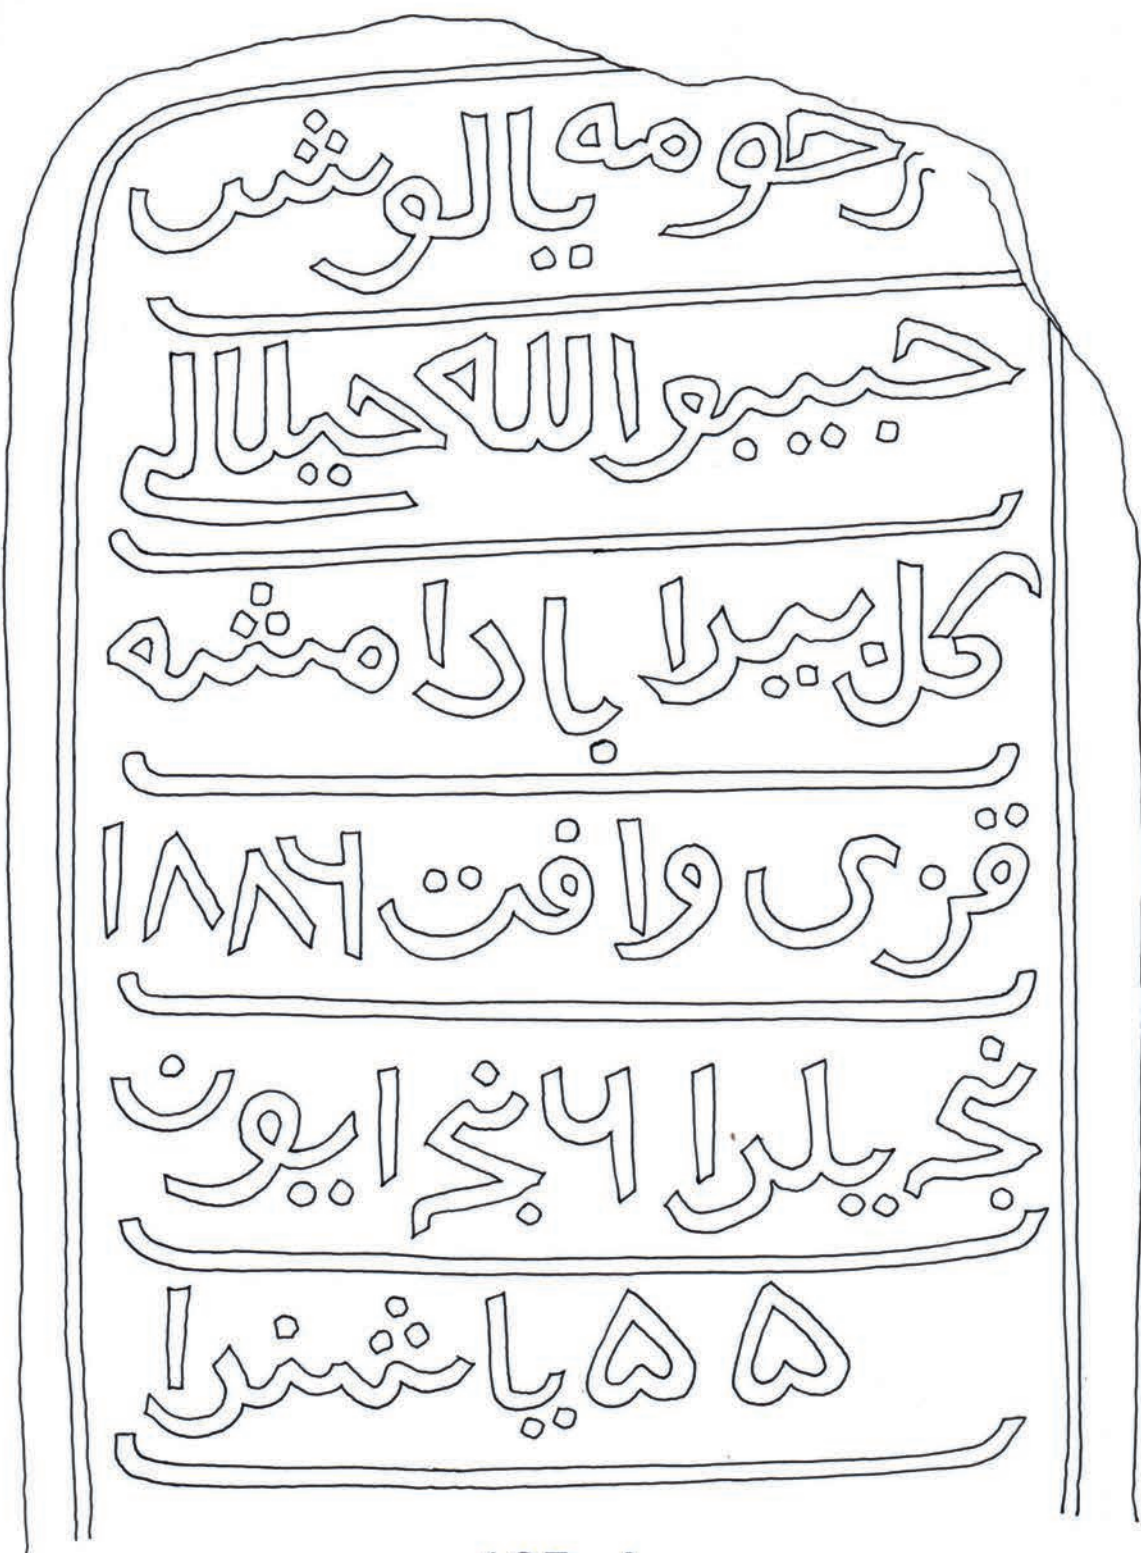 رحومه يالوش
حبيبوالله حيلالى
كل بيرا بارا مشه
قزى وافت ١٨٨۶
نج يلرا ۶ نج ايون
۵۵ ياشنرا